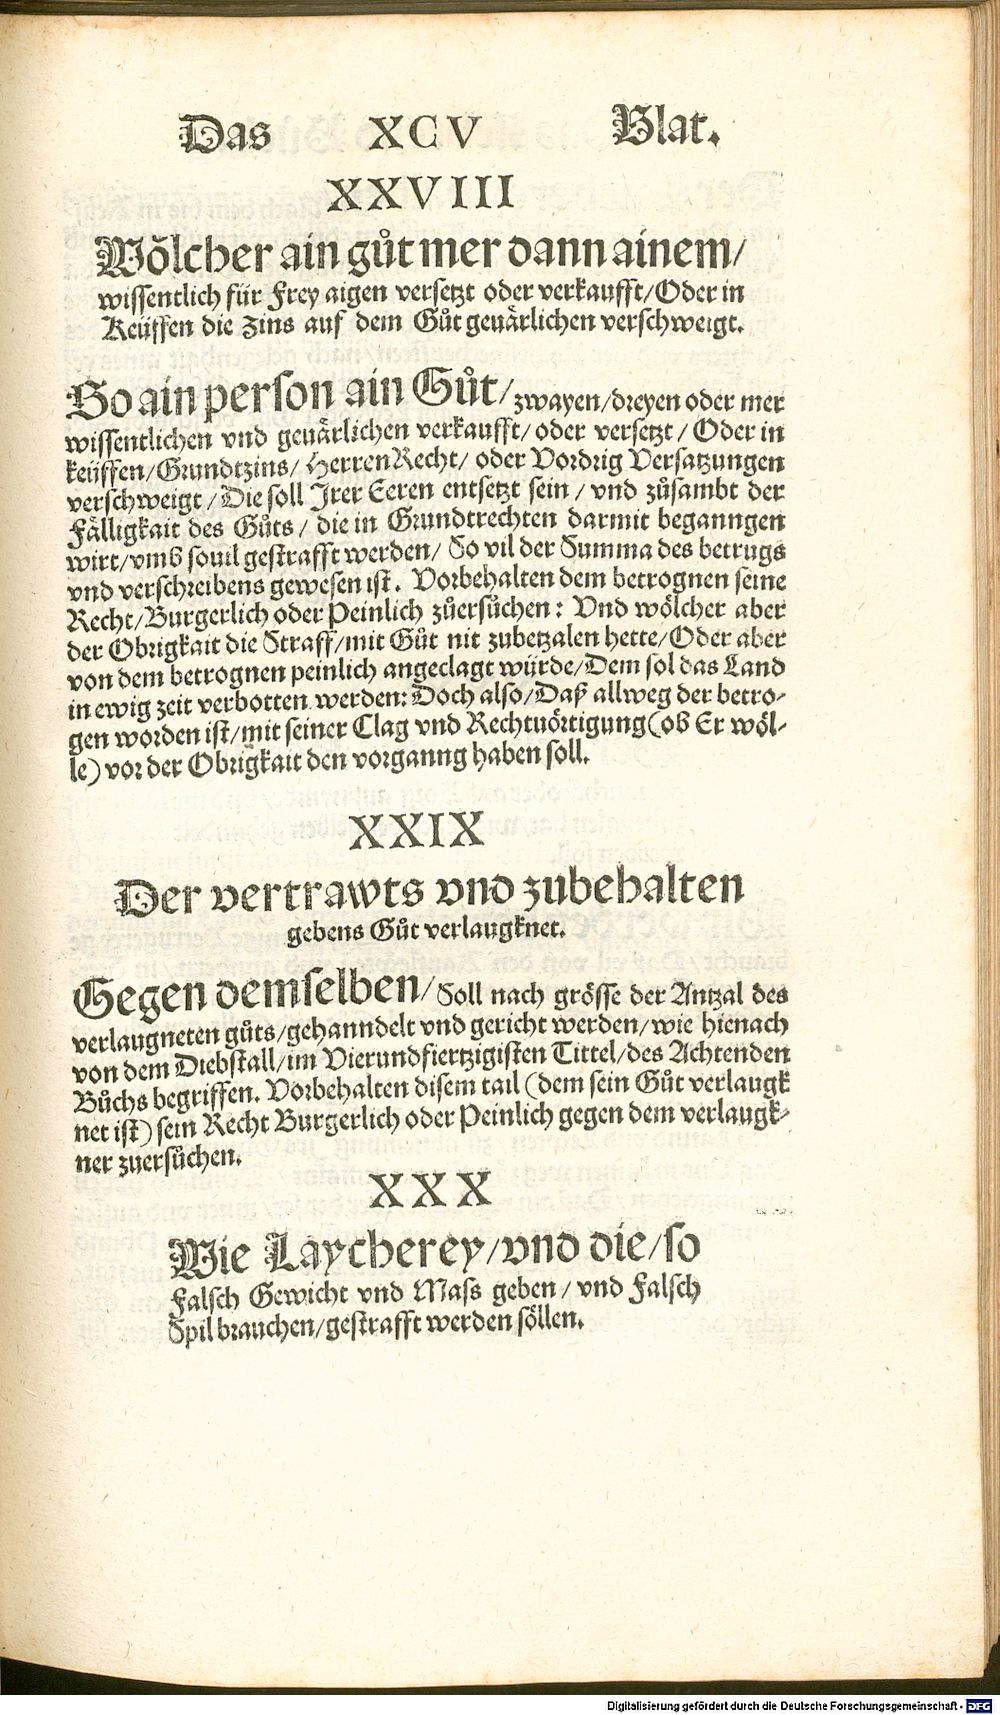 Das XCV Blat.
XXVIII
Wölcher ain gůt mer dann ainem/
wissentlich für Frey aigen versetzt oder verkaufft/Oder in
Keüffen die Zins auf dem Gůt geuärlichen verschweigt.
So ain person ain Gůt/zwayen/dreyen oder mer
wissentlichen vnd geuärlichen verkaufft/oder versetzt/Oder in
keüffen/Grundtzins/HerrenRecht/oder Vordrig Versatzungen
verschweigt/Die soll Irer Eeren entsetzt sein/vnd zůsambt der
Fälligkait des Gůts/die in Grundtrechten darmit beganngen
wirt/vmb souil gestrafft werden/So vil der Summa des betrugs
vnd verschreibens gewesen ist. Vorbehalten dem betrognen seine
Recht/Burgerlich oder Peinlich zůersůchen: Vnd wölcher aber
der Obrigkait die Straff/mit Gůt nit zubetzalen hette/Oder aber
von dem betrognen peinlich angeclagt würde/Dem sol das Land
in ewig zeit verbotten werden: Doch also/Daß allweg der betro-
gen worden ist/mit seiner Clag vnd Rechtuörtigung(ob Er wöl-
le) vor der Obrigkait den vorganng haben soll.
XXIX
Der vertrawts vnd zubehalten
gebens Gůt verlaugknet.
Gegen demselben/Soll nach grösse der Antzal des
verlaugneten gůts/gehanndelt vnd gericht werden/wie hienach
von dem Diebstall/im Vierundfiertzigisten Tittel/des Achtenden
Bůchs begriffen. Vorbehalten disem tail (dem sein Gůt verlaugk
net ist) sein Recht Burgerlich oder Peinlich gegen dem verlaugk-
ner zuersůchen.
XXX
Wie Laycherey/vnd die/so
Falsch Gewicht vnd Mass geben/vnd Falsch
Spil brauchen/gestrafft werden söllen.
Digitalisierung gefördert durch die Deutsche Forschungsgemeinschaft - DFG